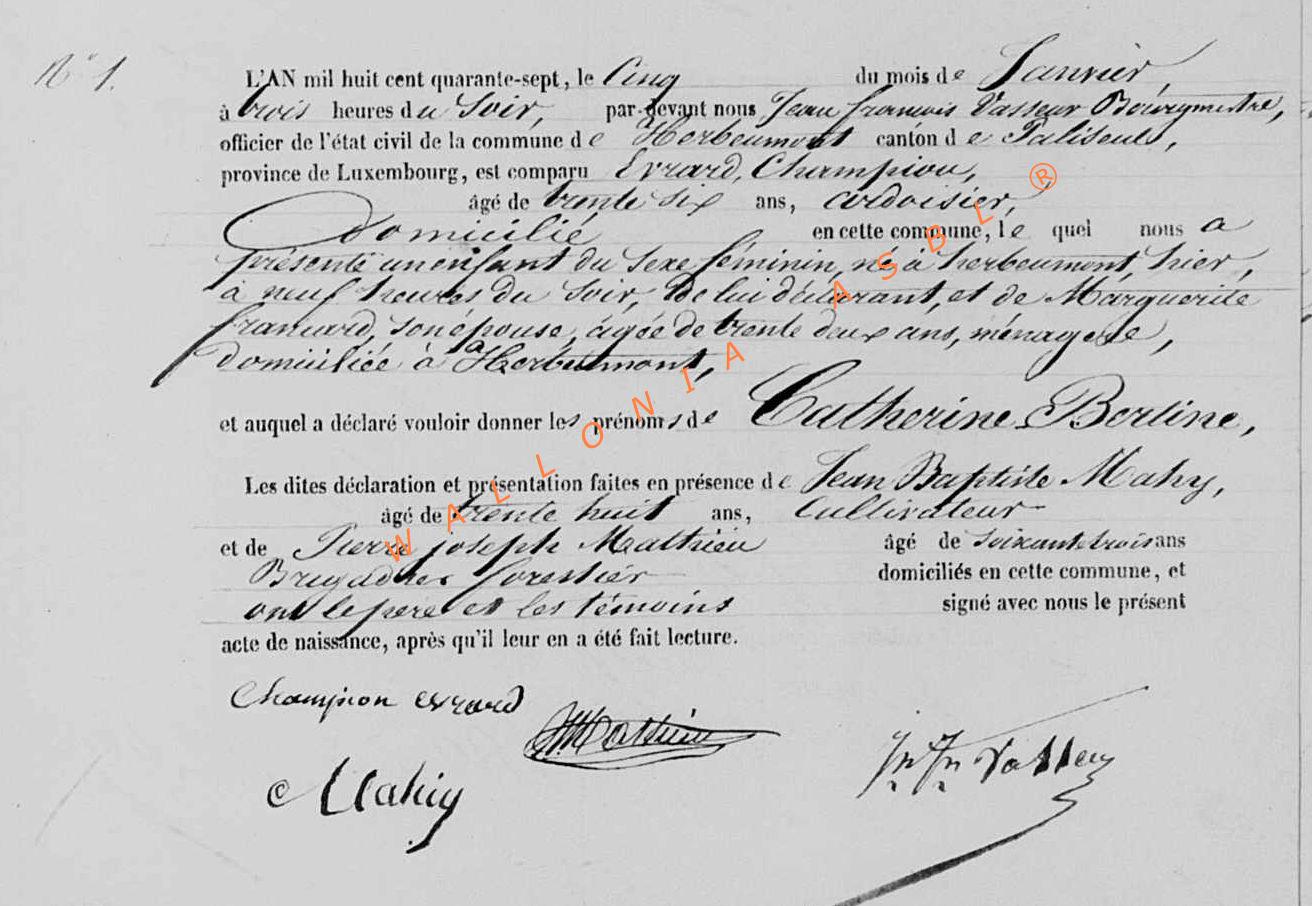 N° 1.
L'AN mil huit cent quarante-sept, le Cinq du mois de Janvier,
à trois heures du Soir, par-devant nous Jean françois Vasseur Bourgmestre,
officier de l'état civil de la commune de Herbeumont canton de Paliseul,
province de Luxembourg, est comparu Evrard, Champion,
âgé de trente six ans, ardoisier,
Domicilié en cette commune, le quel nous a
présenté un enfant du Sexe féminin, né à herbeumont, hier,
à neuf heures du Soir, de lui déclarant, et de Marguerite
françard, son épouse, âgée de trente deux ans, ménagere,
domiciliée à Herbeumont,
et auquel a déclaré vouloir donner les prénoms de Catherine Bertine,
Les dites déclaration et présentation faites en présence de Jean Baptiste Mahy,
âgé de trente huit ans, Cultivateur
et de Pierre joseph Mathieu âgé de soixante trois ans
Brigadier forestier domiciliés en cette commune, et
ont le pere et les témoins signé avec nous le présent
acte de naissance, après qu'il leur en a été fait lecture.
Champion evrard
Mathieu
Mahy
Jn Fn Vasseur
WALLONIA ASBL ®